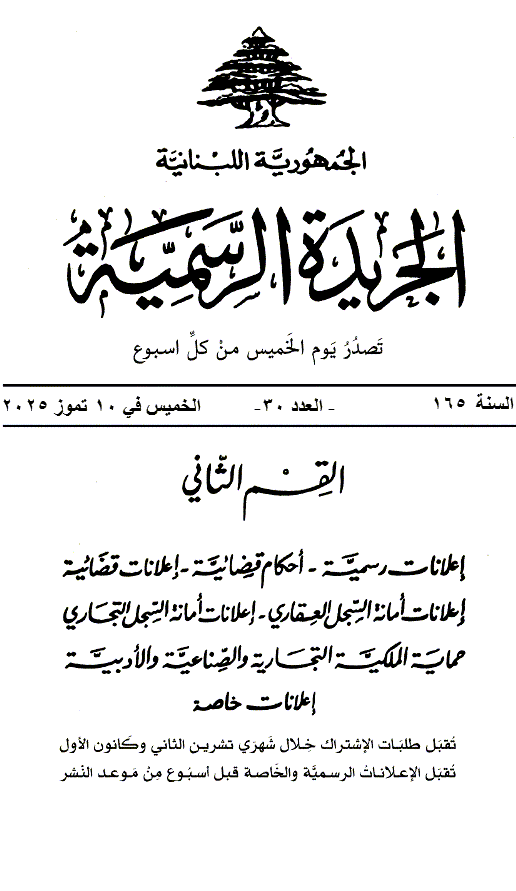 الجمهورية اللبنانية
الجريدة الرسمية
تصدر يوم الخميس من كل اسبوع
السنة ١٦٥ - العدد ٣٠- الخميس في ١٠ تموز ٢٠٢٥
القسم الثاني
إعلانات رسمية - أحكام قضائية - إعلانات قضائية
إعلانات أمانة السجل العقاري - إعلانات أمانة السجل التجاري
حماية الملكية التجارية والصناعية والأدبية
إعلانات خاصة
تقبل طلبات الإشتراك خلال شهري تشرين الثاني وكانون الأول
تقبل الإعلانات الرسمية والخاصة قبل أسبوع من موعد النشر